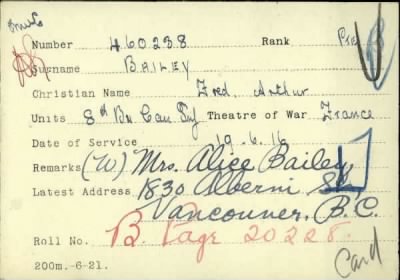 Number 460238 Rank Pte
Surname BAILEY
Christian Name Fred. Arthur
Units 8th Bn Can Inf Theatre of War France
Date of Service 19.6.16
Remarks (W) Mrs. Alice Bailey
Latest Address 1830 Alberni St.
Vancouver, B.C.
Roll No. B. Page 20228.
200m.-6-21. Card